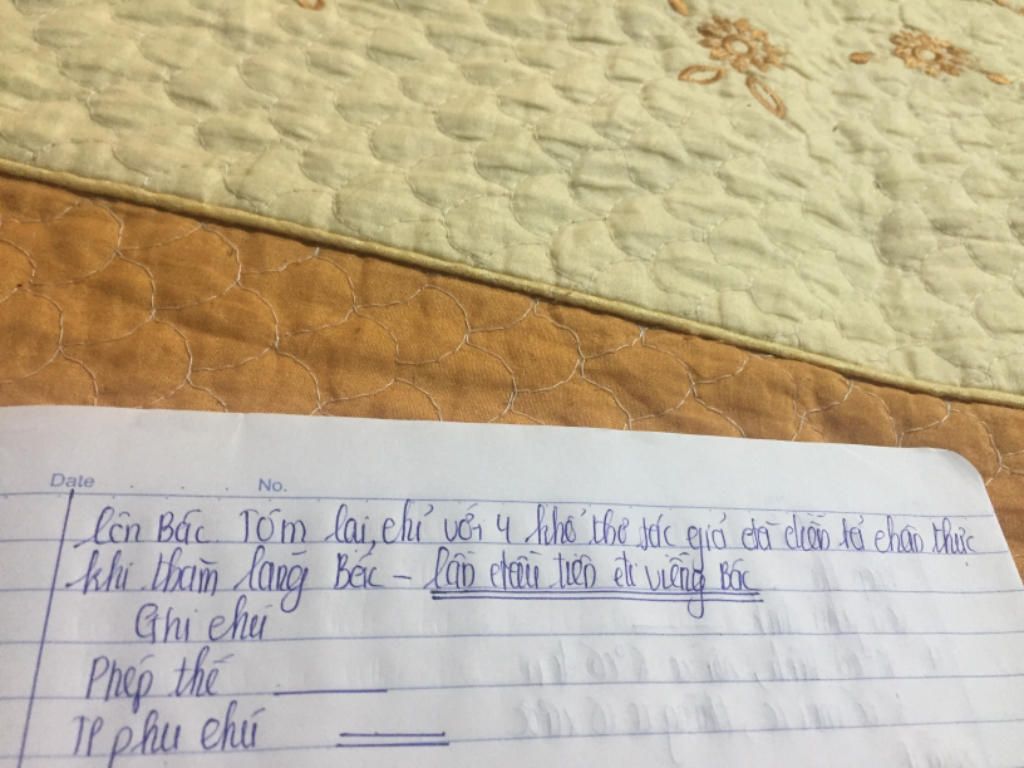 Date No.
lên Bác. Tóm lại, chỉ với 4 khổ thơ tác giả đã diễn tả chân thực
khi thăm lăng Bác – lần đầu tiên đi viếng Bác
Ghi chú
Phép thế
TP phụ chú